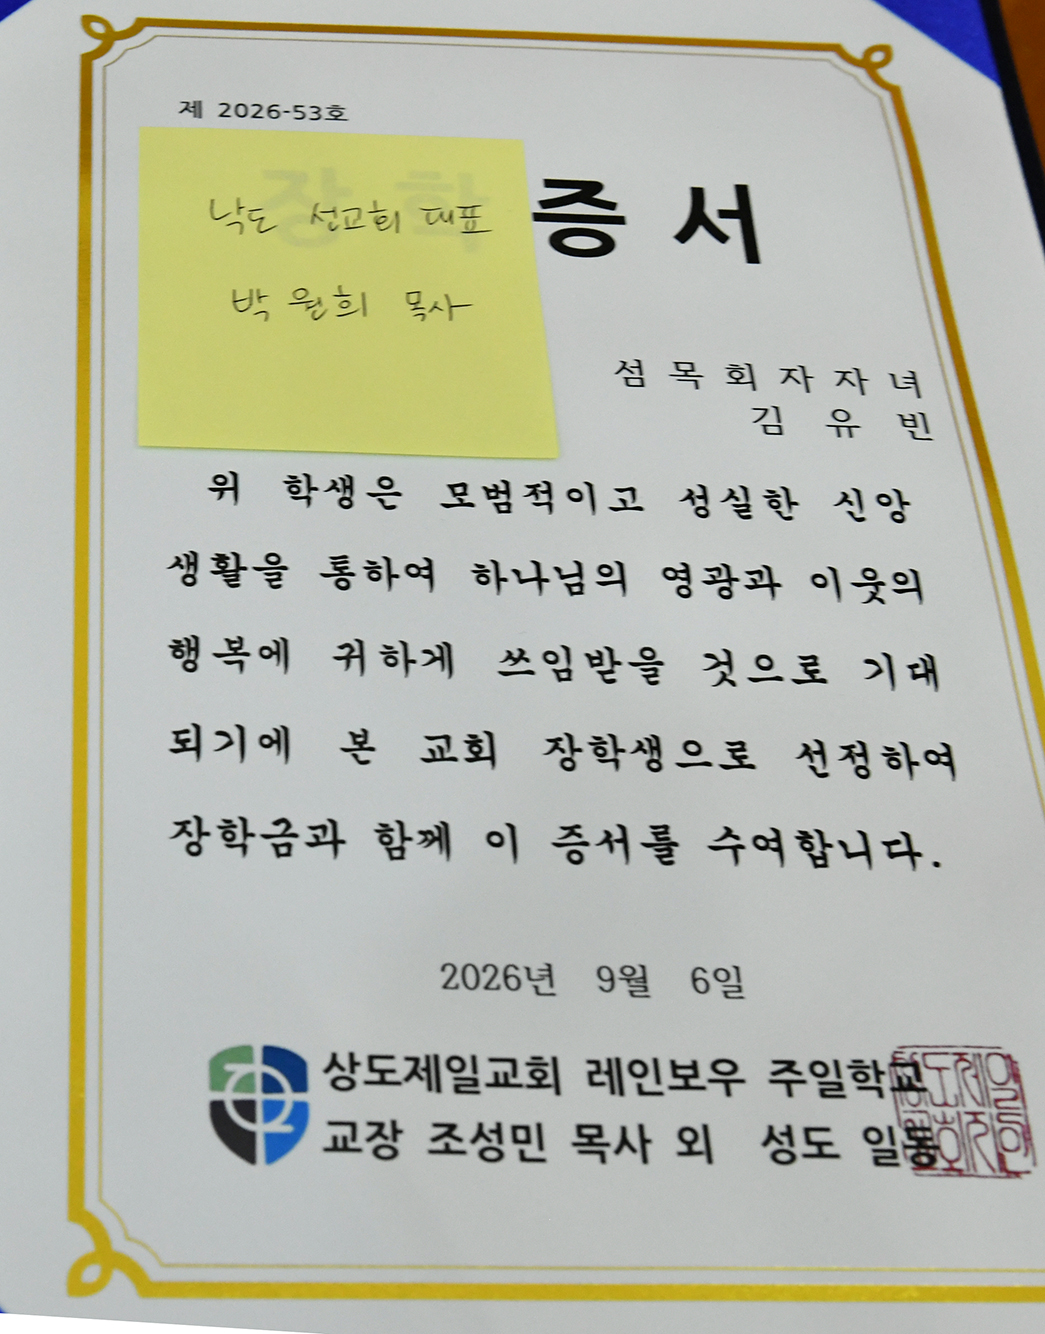 제 2026-53호
장 학 증 서
낙도 선교회 대표
박원희 목사
섬목회자자녀
김 유 빈
위 학생은 모범적이고 성실한 신앙
생활을 통하여 하나님의 영광과 이웃의
행복에 귀하게 쓰임받을 것으로 기대
되기에 본 교회 장학생으로 선정하여
장학금과 함께 이 증서를 수여합니다.
2026년 9월 6일
상도제일교회 레인보우 주일학교
교장 조성민 목사 외 성도 일동